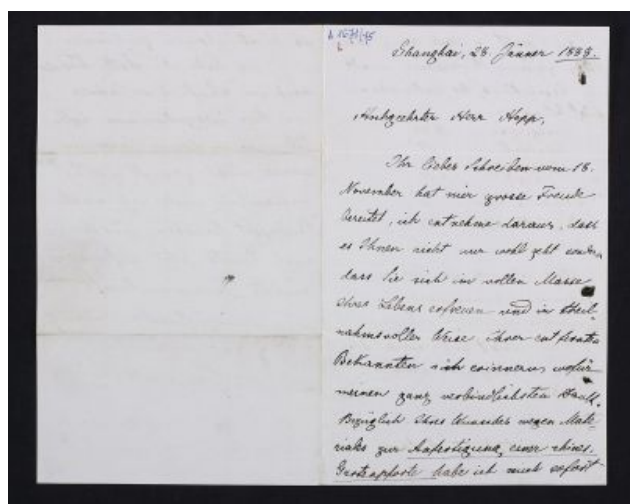 Shanghai, 28. Jänner 1888.
Hochgeehrter Herr Hopp,
Ihr liebes Schreiben vom 18.
November hat mir grosse Freude
bereitet, ich entnehme daraus, dass
es Ihnen nicht nur wohl geht sondern
dass Sie sich im vollen Masse
Ihres Lebens erfreuen und in theil-
nahmsvoller Weise Ihrer entfernten
Bekannten sich erinnern, wofür
meinen ganz verbindlichsten Dank.
Bezüglich Ihres Wunsches wegen Mate-
rials zur Anfertigung einer chines.
Gartenpforte habe ich mich sofort